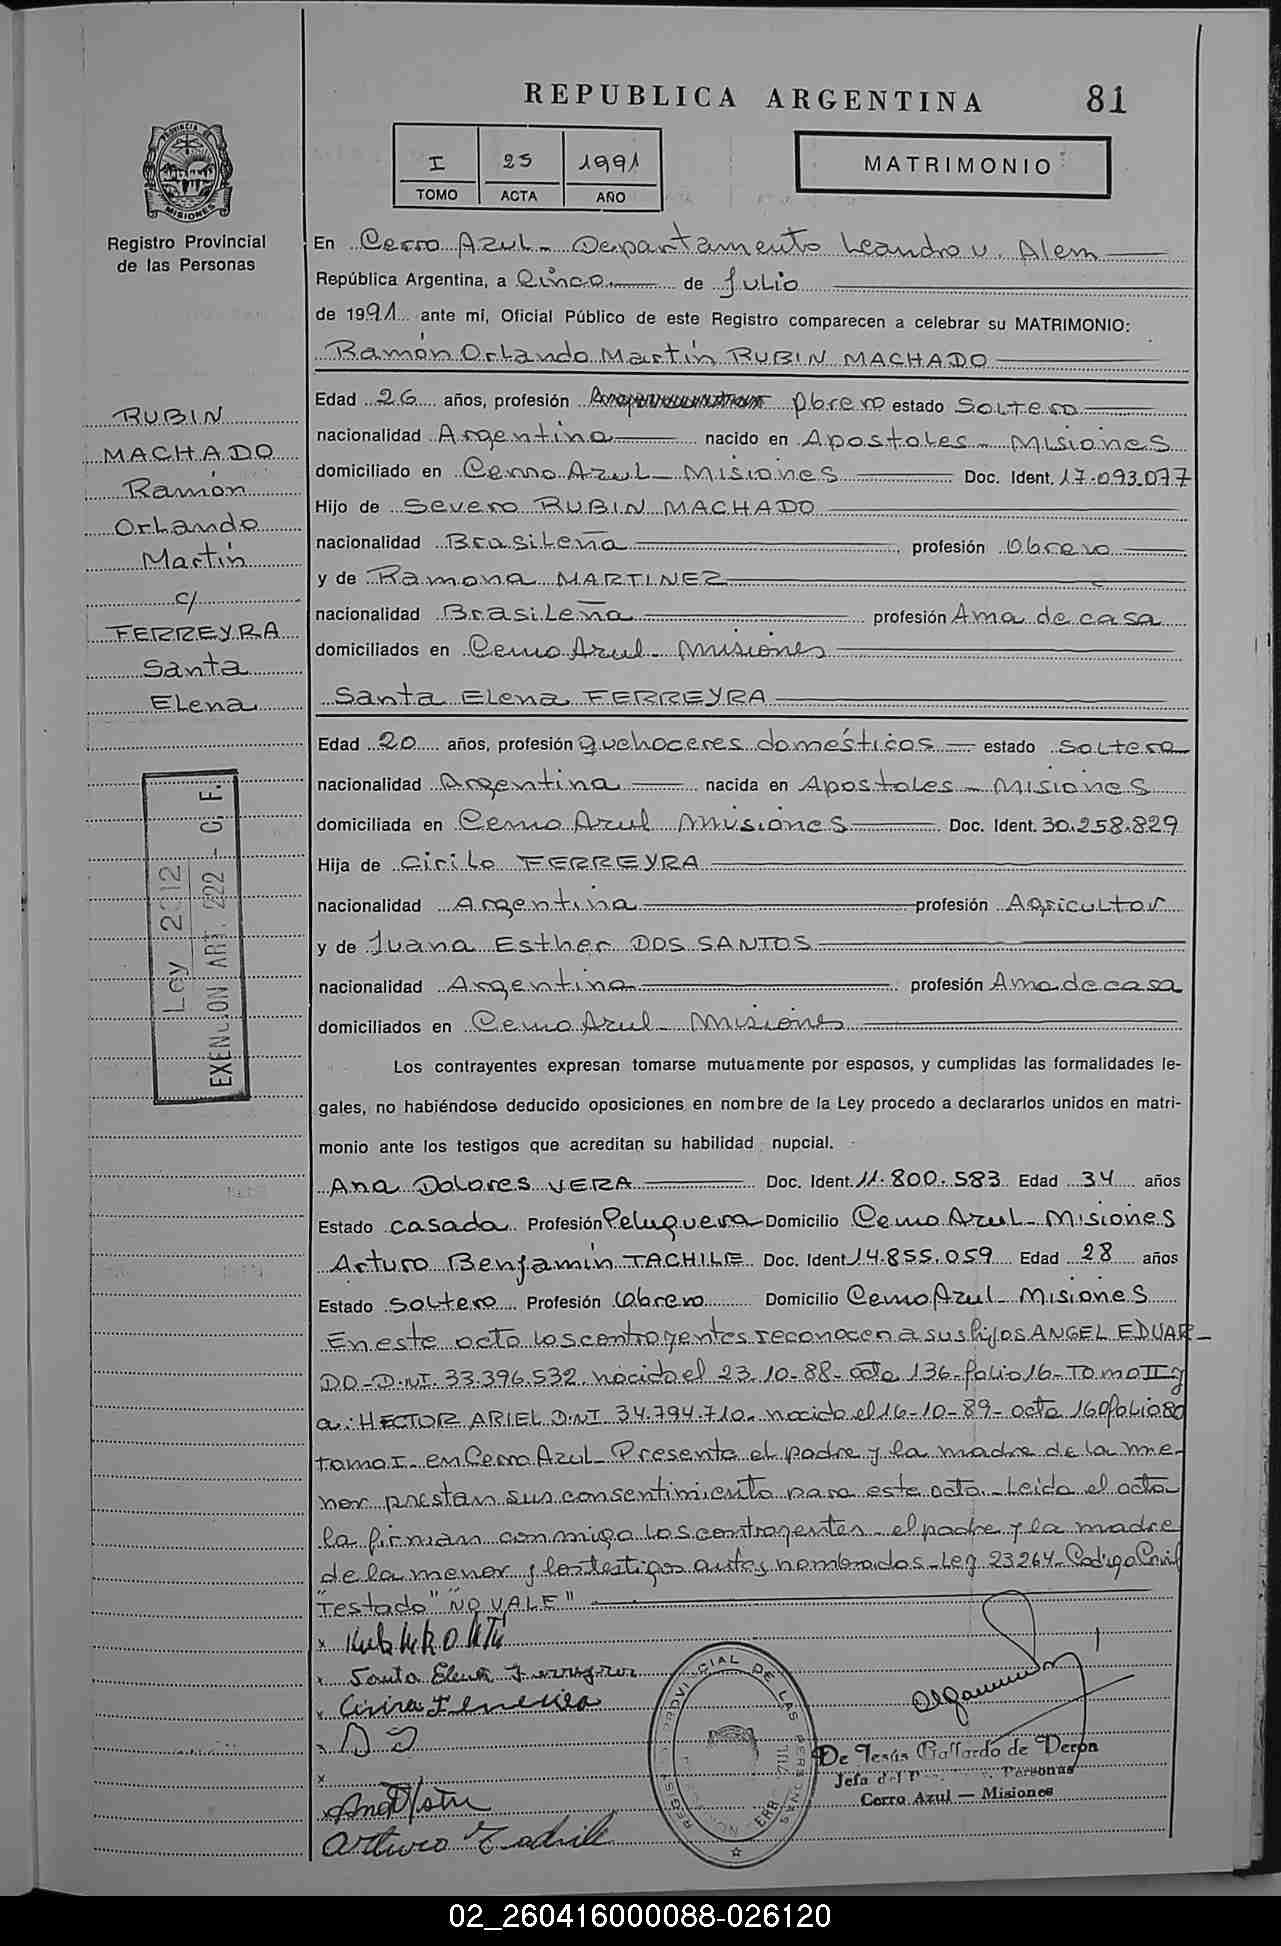 REPUBLICA ARGENTINA 81
PROVINCIA DE MISIONES
Registro Provincial
de las Personas
I 25 1991
TOMO ACTA AÑO
MATRIMONIO
En Cerro Azul - Departamento Leandro N. Alem
República Argentina, a Cinco de Julio
de 1991 ante mí, Oficial Público de este Registro comparecen a celebrar su MATRIMONIO:
Ramón Orlando Martín RUBIN MACHADO
Edad 26 años, profesión Obrero estado Soltero
nacionalidad Argentina nacido en Apostoles - Misiones
domiciliado en Cerro Azul - Misiones Doc. Ident. 17.093.077
Hijo de Severo RUBIN MACHADO
nacionalidad Brasileña, profesión Obrero
y de Ramona MARTINEZ
nacionalidad Brasileña profesión Ama de casa
domiciliados en Cerro Azul - Misiones
Santa Elena FERREYRA
Edad 20 años, profesión quehaceres domésticos estado Soltera
nacionalidad Argentina nacida en Apostoles - Misiones
domiciliada en Cerro Azul Misiones Doc. Ident. 30.258.829
Hija de Cirilo FERREYRA
nacionalidad Argentina profesión Agricultor
y de Juana Esther DOS SANTOS
nacionalidad Argentina profesión Ama de casa
domiciliados en Cerro Azul - Misiones
Los contrayentes expresan tomarse mutuamente por esposos, y cumplidas las formalidades le-
gales, no habiéndose deducido oposiciones en nombre de la Ley procedo a declararlos unidos en matri-
monio ante los testigos que acreditan su habilidad nupcial.
Ana Dolores VERA Doc. Ident. 11.800.583 Edad 34 años
Estado casada Profesión Peluquera Domicilio Cerro Azul - Misiones
Arturo Benjamín TACHILE Doc. Ident. 14.855.059 Edad 28 años
Estado soltero Profesión Obrero Domicilio Cerro Azul - Misiones
En este acto los contrayentes reconocen a sus hijos ANGEL EDUAR-
DO - D.N.I. 33.396.532 nacido el 23-10-88 - acta 136 - folio 16 - Tomo II y
a: HECTOR ARIEL D.N.I 34.794.710 - nacido el 16-10-89 - acta 160 folio 80
tomo I - en Cerro Azul - Presente el padre y la madre de la me-
nor prestan su consentimiento para este acto - Leida el acta
la firman conmigo los contrayentes - el padre y la madre
de la menor y los testigos antes nombrados - Ley 23264 - Codigo Civil
"Testado" "NO VALE"
RUBIN
MACHADO
Ramón
Orlando
Martín
c/
FERREYRA
Santa
Elena
Ley 2312
EXENCION ART. 222 - C. F.
x
x Santa Elena Ferreyra
x
x D S
x
x
Arturo Tachile
REGISTRO PROVINCIAL DE LAS PERSONAS
De Jesús Gallardo de Deron
Jefa del Personas
Cerro Azul — Misiones
02_260416000088-026120